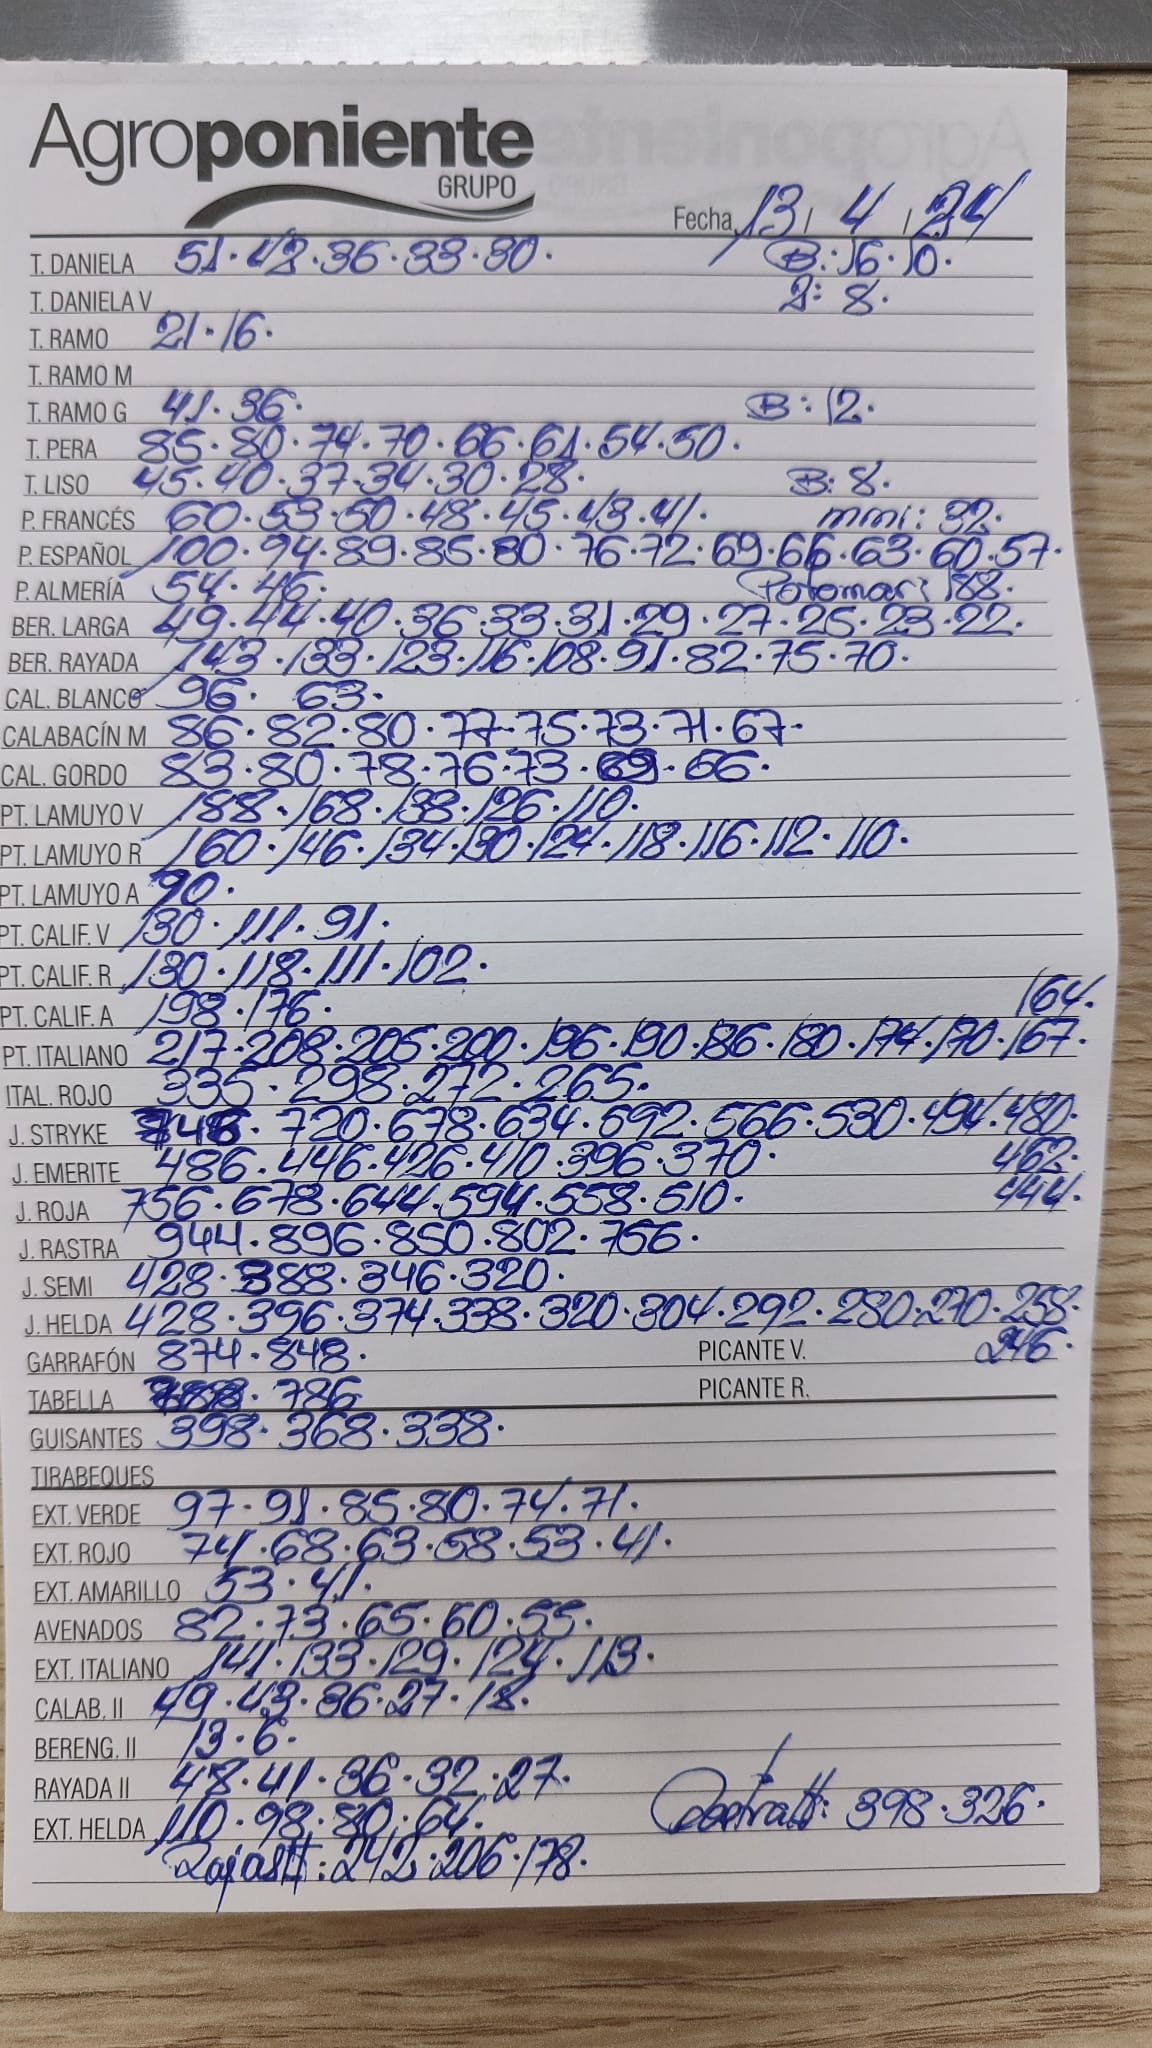 Agroponiente
GRUPO
Fecha 13 / 4 / 24
T. DANIELA 51·42·36·33·30· B: 16·10·
T. DANIELA V 2: 8·
T. RAMO 21·16·
T. RAMO M
T. RAMO G 41·36· B: 12·
T. PERA 85·80·74·70·66·61·54·50·
T. LISO 45·40·37·34·30·28· B: 8·
P. FRANCÉS 60·53·50·48·45·43·41· mmi: 32·
P. ESPAÑOL 100·94·89·85·80·76·72·69·66·63·60·57·
P. ALMERÍA 54·46· 188·
BER. LARGA 49·44·40·36·33·31·29·27·25·23·22·
BER. RAYADA 143·133·123·116·108·91·82·75·70·
CAL. BLANCO 96· 63·
CALABACÍN M 86·82·80·77·75·73·71·67·
CAL. GORDO 83·80·78·76·73·69·66·
PT. LAMUYO V 188·168·138·126·110·
PT. LAMUYO R 160·146·134·130·124·118·116·112·110·
PT. LAMUYO A 90·
PT. CALIF. V 130·111·91·
PT. CALIF. R 130·118·111·102·
PT. CALIF. A 198·176· 164·
PT. ITALIANO 217·208·205·200·196·190·186·180·174·170·167·
ITAL. ROJO 335·298·272·265·
J. STRYKE 746·720·678·634·592·566·530·494·480·
J. EMERITE 486·446·426·410·396·370· 462·
J. ROJA 756·678·644·594·558·510· 444·
J. RASTRA 944·896·850·802·756·
J. SEMI 428·388·346·320·
J. HELDA 428·396·374·338·320·304·292·280·270·258·
GARRAFÓN 874·848· PICANTE V. 246·
TABELLA 786 PICANTE R.
GUISANTES 398·368·338·
TIRABEQUES
EXT. VERDE 97·91·85·80·74·71·
EXT. ROJO 74·68·63·58·53·41·
EXT. AMARILLO 53·41·
AVENADOS 82·73·65·60·55·
EXT. ITALIANO 141·133·129·124·113·
CALAB. II 49·43·36·27·18·
BERENG. II 13·6·
RAYADA II 48·41·36·32·27·
EXT. HELDA 110·98·80·64· 398·326·
Rojas II: 242·206·178·